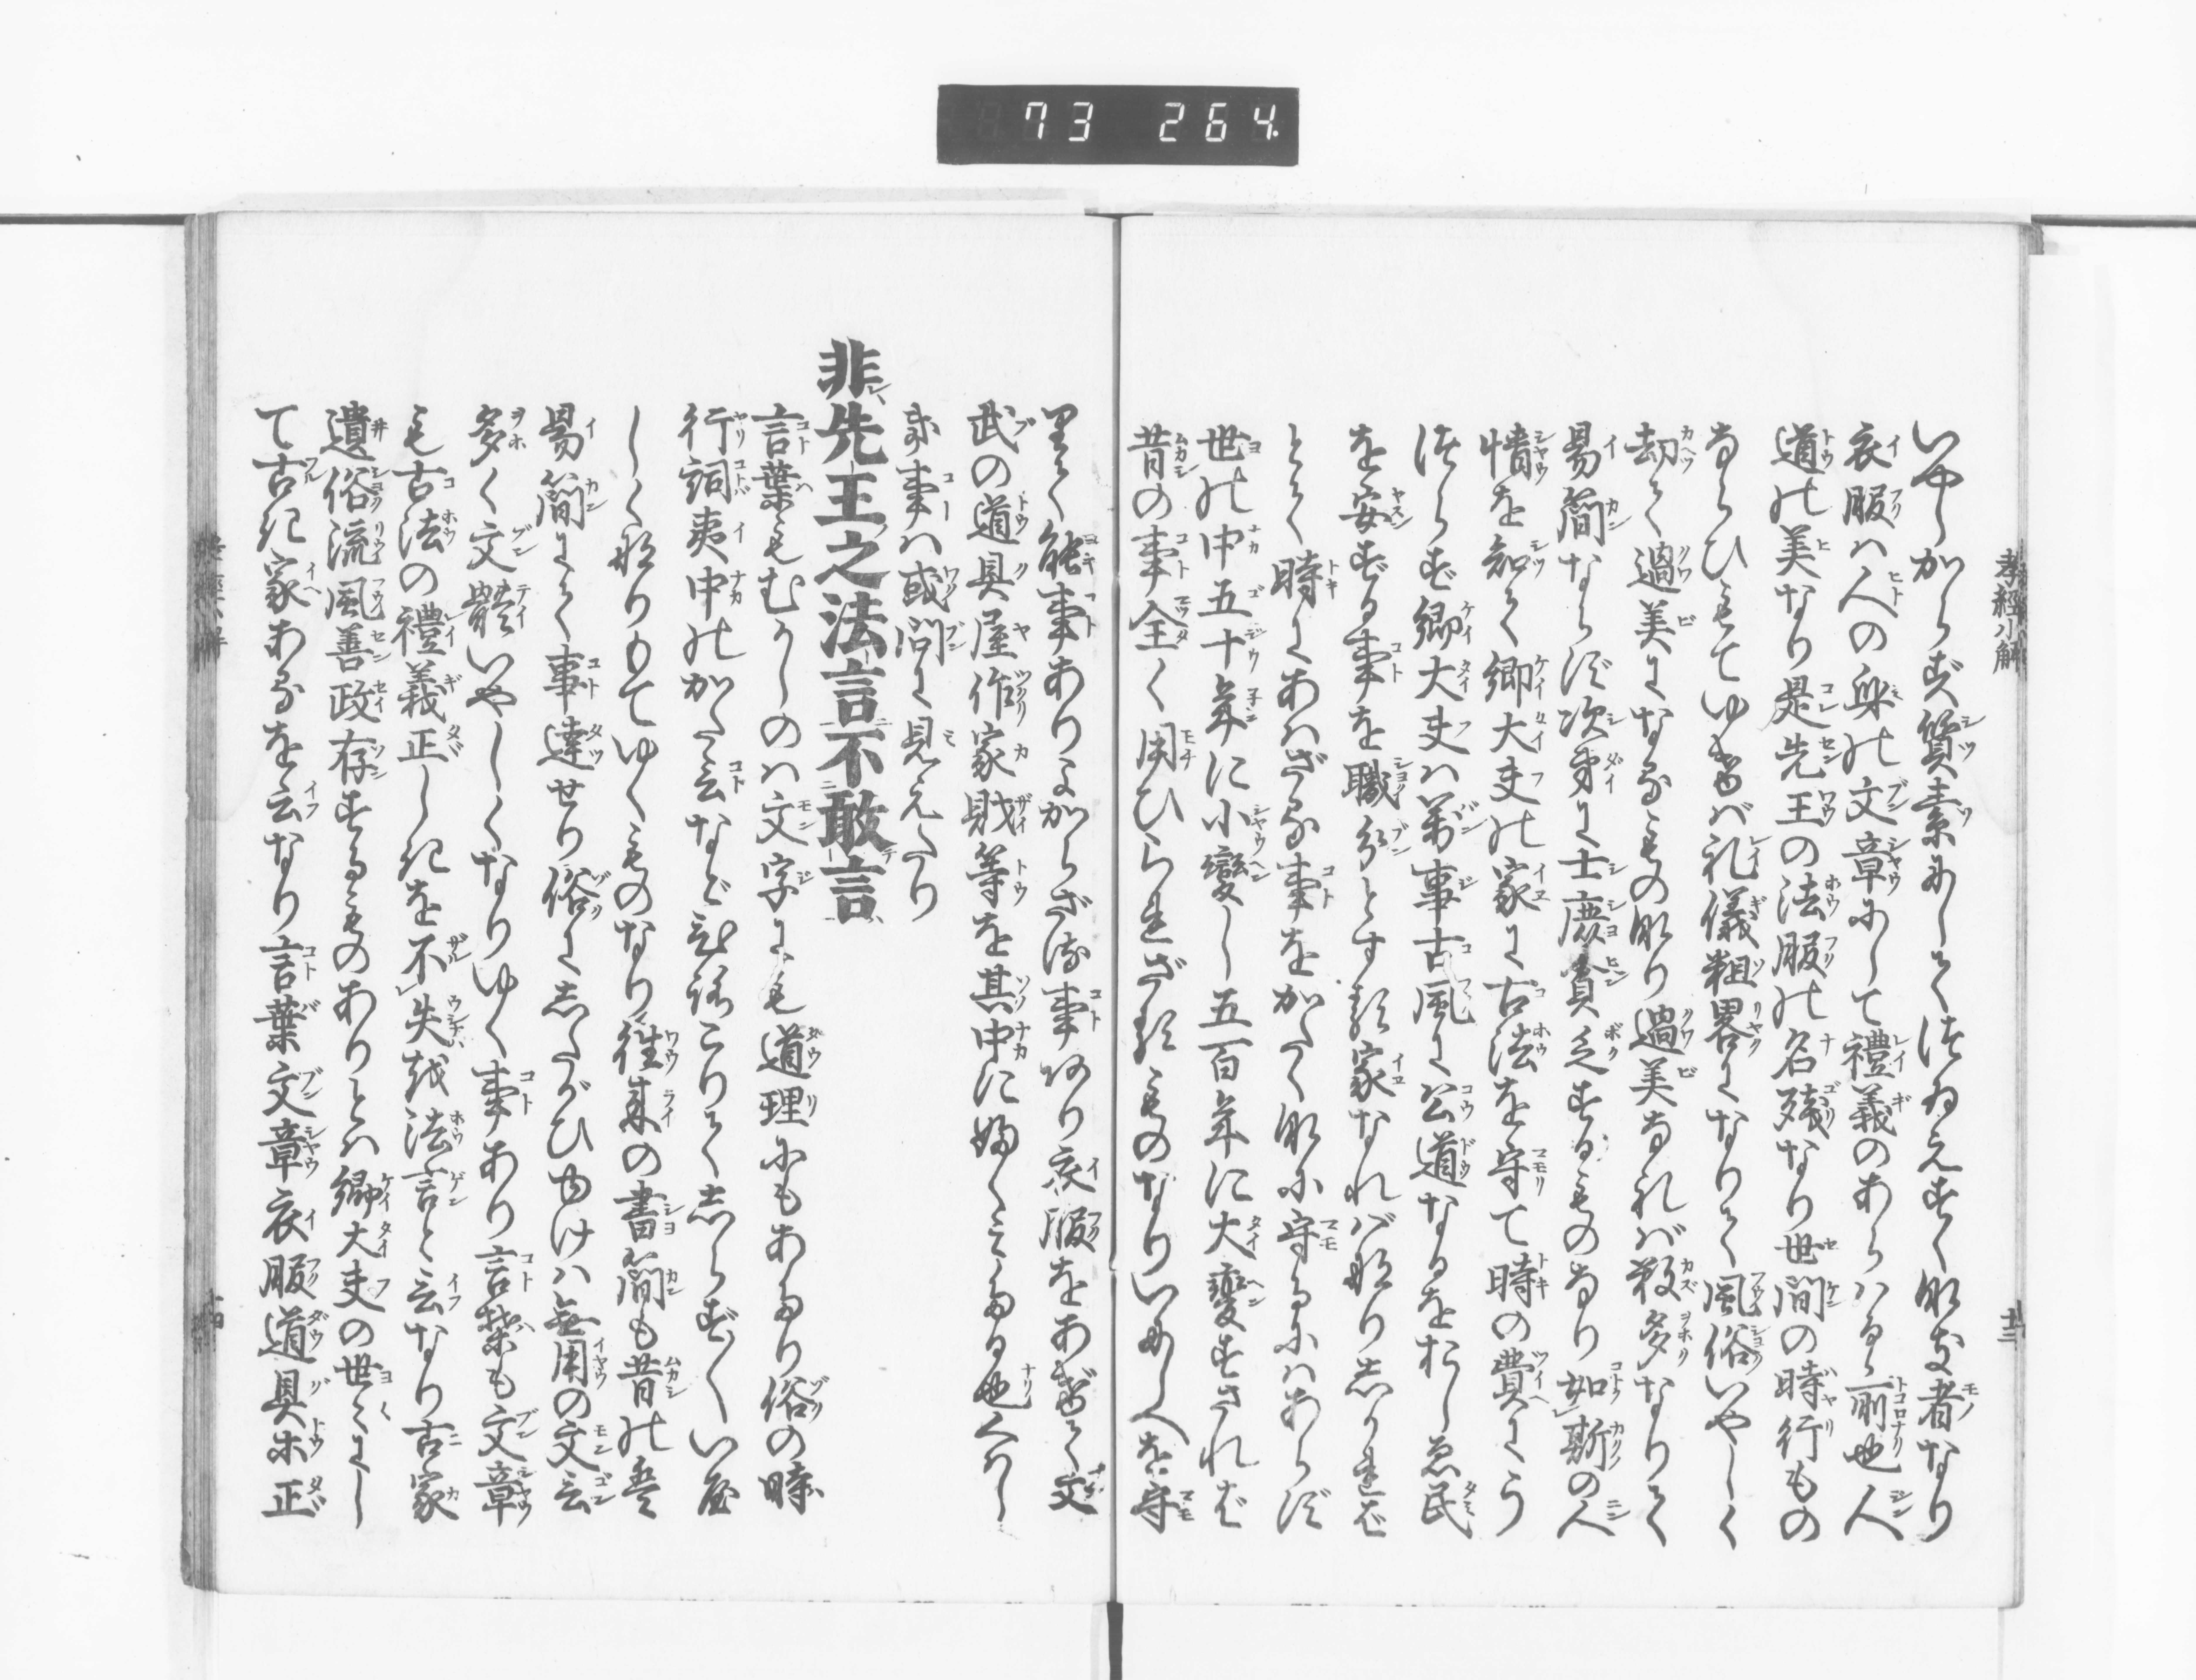 73 264
孝経小解
いやしからず質素にしてつゐえすくなき者なり
衣服ハ人の身の文章にして禮義のあらハるゝ所也人
道の美なり是先王の法服の名殘なり世間の時行もの
ならひもてゆけバ礼儀粗畧になりて風俗いやしく
却て過美になるもの也過美なれバ數多なりて
易簡ならず次第に士庶貧乏するものなり如斯の人
情を知て卿大夫の家に古法を守て時の費にう
つらず卿大夫ハ萬事古風に公道なるをおし思民
を安ずる事を職分とする家なれバ也しかれど
とて時にあハざる事をかたく守るにハあらず
世の中五十年に小變し五百年に大變すされど
昔の事全く用ひられざるものなりいにしへを守
て能事ありよからざる事あり衣服をあげて文
武の道具屋作家財等を其中に籠てミする也くハし
き事ハ或問に見えたり
非先王之法言不敢言
言葉もむかしのハ文字にも道理にもあたり俗の時
行詞夷中のかた言などハ誤りて
しく也もてゆくものなり往来の書簡も昔の
易簡にて事達せり俗にしたがひ無用の文言
多く文體いやしくなりゆく事あり言葉も文章
も古法の禮義正しきを不失を法言と云なり古家
遺俗流風善政存するものありとハ卿大夫の世々にし
て古き家あるを云なり言葉文章衣服道具等正